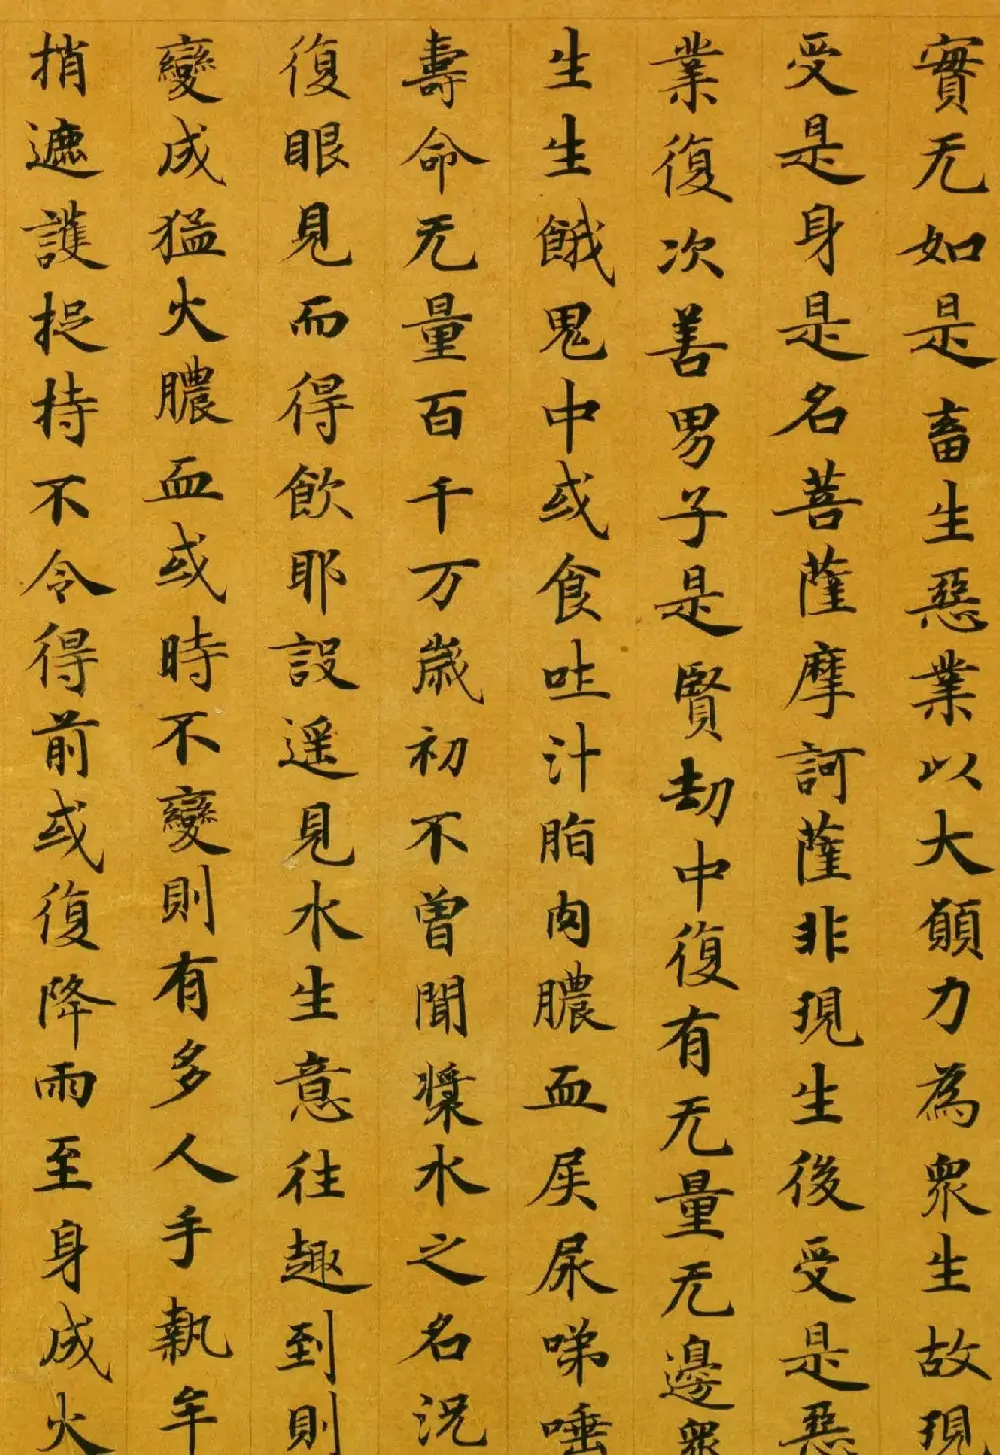 實无如是畜生惡業以大願力為眾生故現
受是身是名菩薩摩訶薩非現生後受是惡
業復次善男子是賢劫中復有无量无邊眾
生生餓鬼中或食吐汁脂肉膿血屎尿唾
壽命无量百千万歲初不曾聞漿水之名況
復眼見而得飲耶設遥見水生意往趣到則
變成猛火膿血或時不變則有多人手執牟
捎遮護捉持不令得前或復降雨至身成火